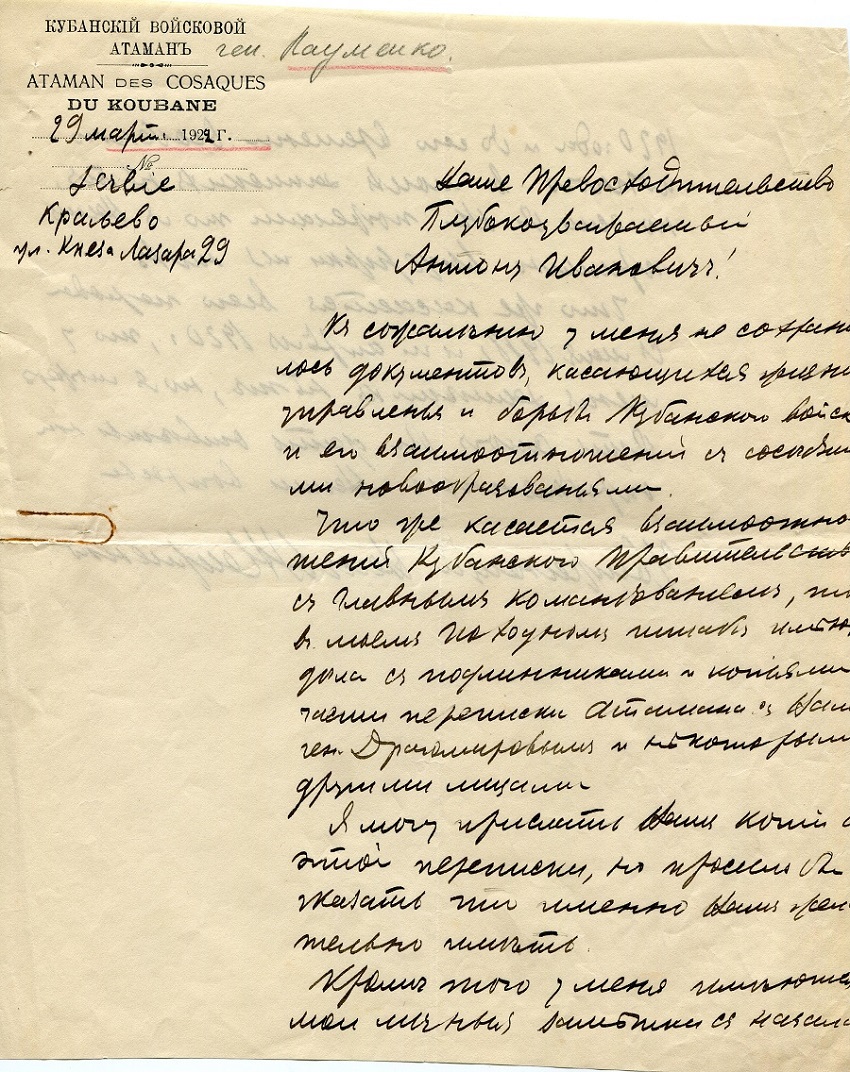 КУБАНСКІЙ ВОЙСКОВОЙ
АТАМАНЪ
ген. Науменко.
ATAMAN DES COSAQUES
DU KOUBANE
29 марта 1922 г.
№
Serbie
Краљево
ул. Кнеза Лазара 29
Ваше Превосходительство
Глубокоуважаемый
Антонъ Ивановичъ!
Къ сожалѣнію у меня не сохрани
лось документовъ, касающихся
управленья и борьбы Кубанского войск
и его взаимоотношений съ сосѣдни
ми новообразованьями.
Что же касается взаимоотно
шений Кубанского Правительств
съ главнымъ командованіемъ, то
въ моемъ Походномъ штабѣ имѣю
дѣла съ подлинниками и копьями
части переписки Атамана съ Вам
ген. Драгомировымъ и нѣкоторыми
другими лицами
Я могу прислать Вамъ копіи с
этой переписки, но просилъ бы
указать что именно Вамъ жела
тельно имѣть.
Кромѣ того у меня имѣются
мои личныя замѣтки съ начала